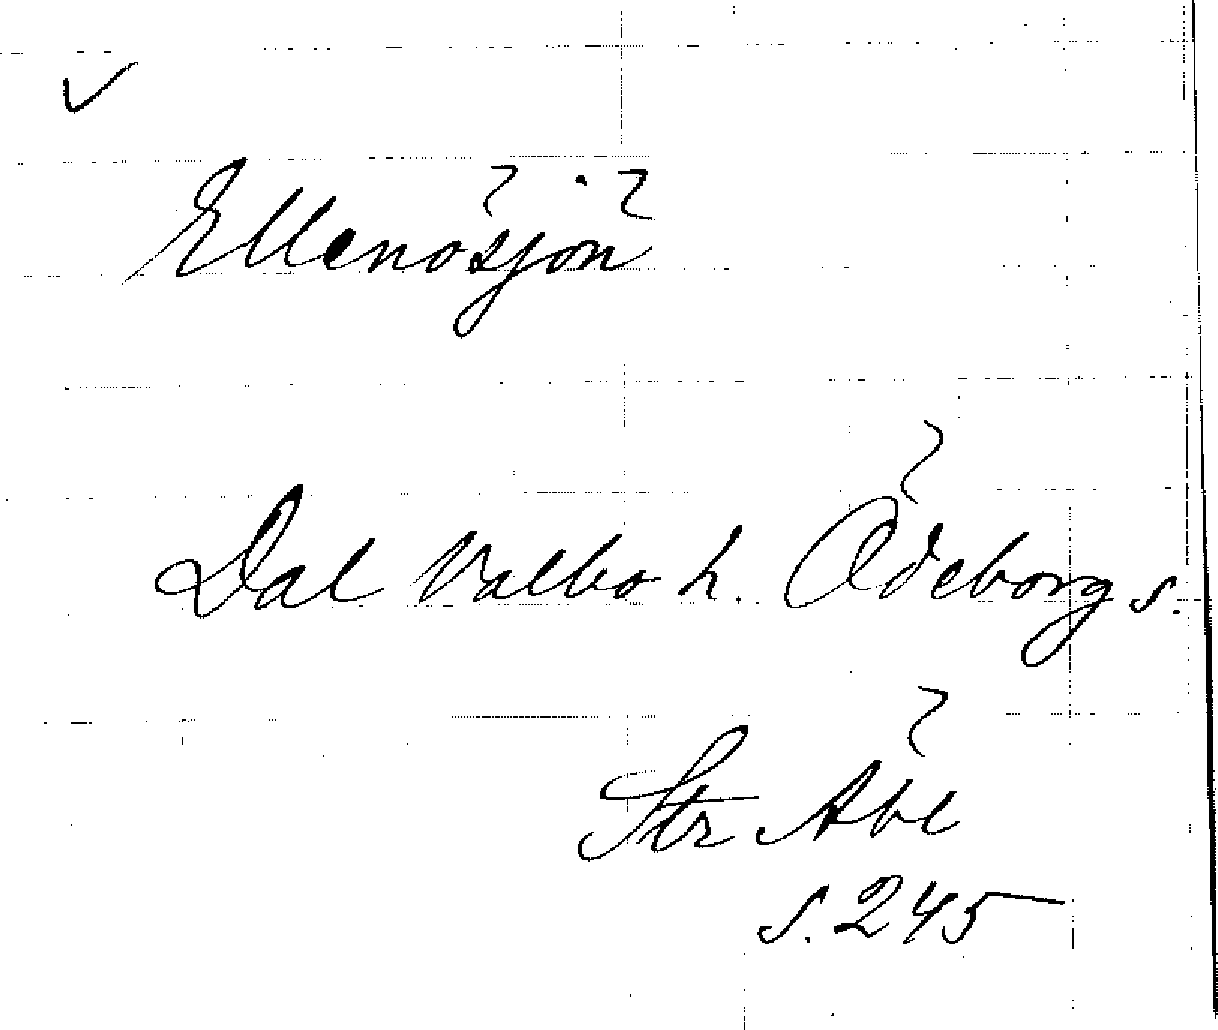 Ellenösjön
Dal Valbo h. Ödeborg s.
Str Åbl
s. 245